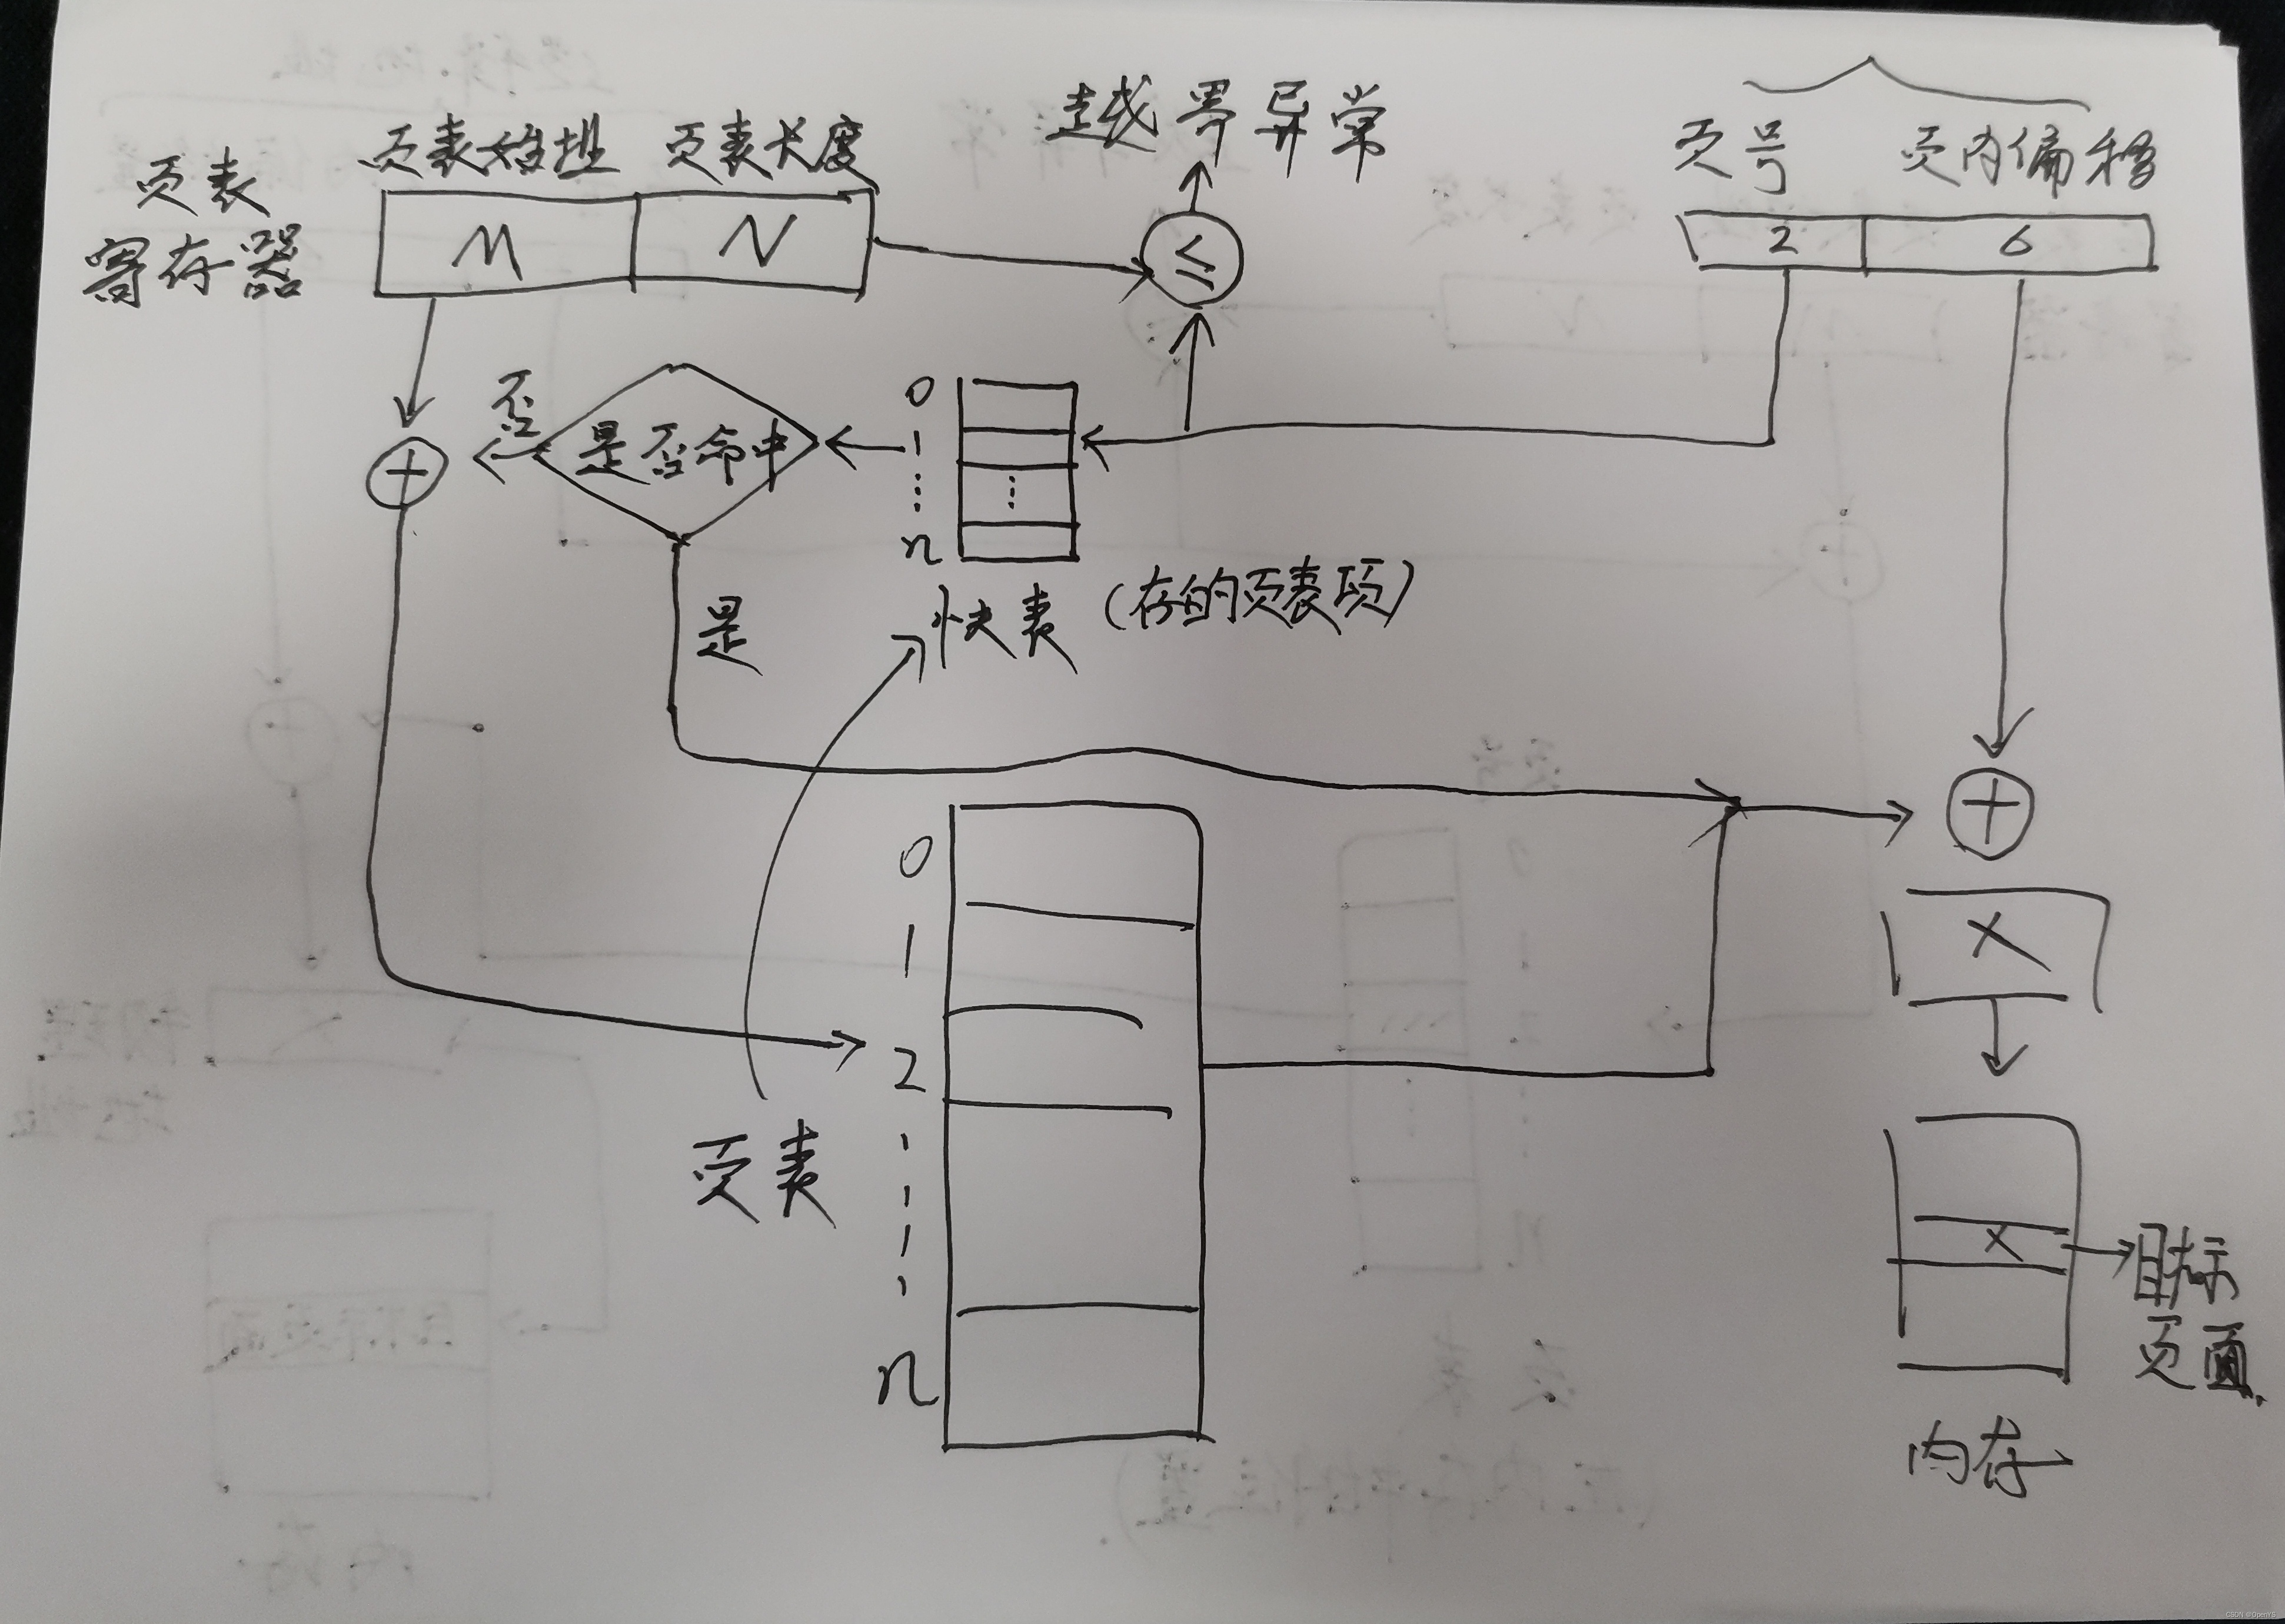 越界异常
页表始址 页表长度
页号 页内偏移
页表
寄存器
M N
≤
2 6
0
1
⋮
n
⋮
否
是否命中
+
是
快表 (存的页表项)
+
0
1
2
n
X
页表
X
目标
页面
内存
CSDN @OpenYuI